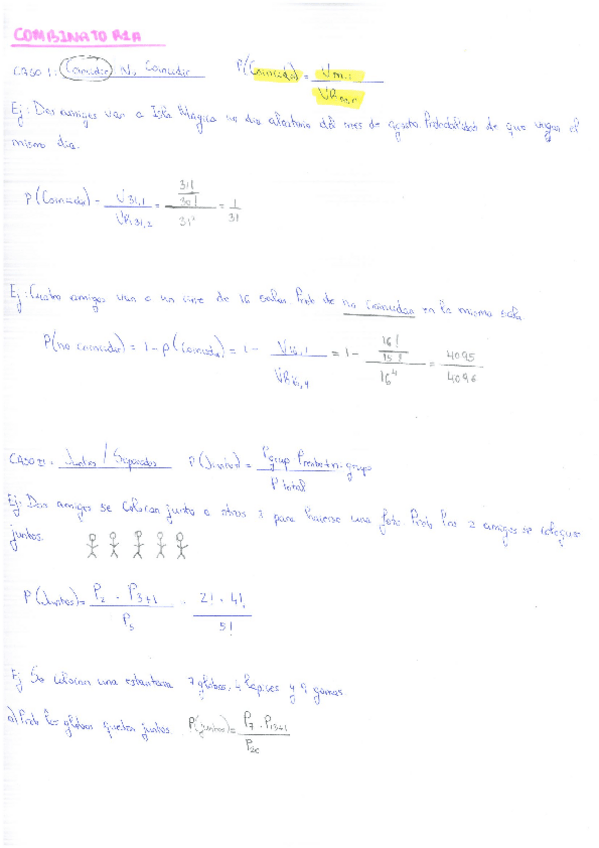 COMBINATORIA
CASO I: Coincidir N. Coincidir P(Coincida) = Vm,1 / VRm,n
Ej: Dos amigos van a Isla Magica un dia aleatorio del mes de agosto. Probabilidad de que vayan el
mismo dia.
P(Coincida) = V31,1 / VR31,2 = 31!/30! / 31² = 1/31
Ej: Cuatro amigos van a un cine de 16 salas Prob de no coincidan en la misma sala
P(no coincida) = 1 - P(coincida) = 1 - V16,1 / VR16,4 = 1 - 16!/15! / 16⁴ = 4095/4096
CASO II. Juntos / Separados P(Juntos) = Pgrup Presto+n-grup / Ptotal
Ej: Dos amigos se colocan junto a otros 3 para hacerse una foto Prob los 2 amigos se coloquen
juntos.
P(Juntos) = P2 · P3+1 / P5 · 2! · 4! / 5!
Ej So colocan una estanteria 7 globos, 4 lapices y 9 gomas
a) Prob los globos queden juntos P(juntos) = P7 · P13+1 / P20